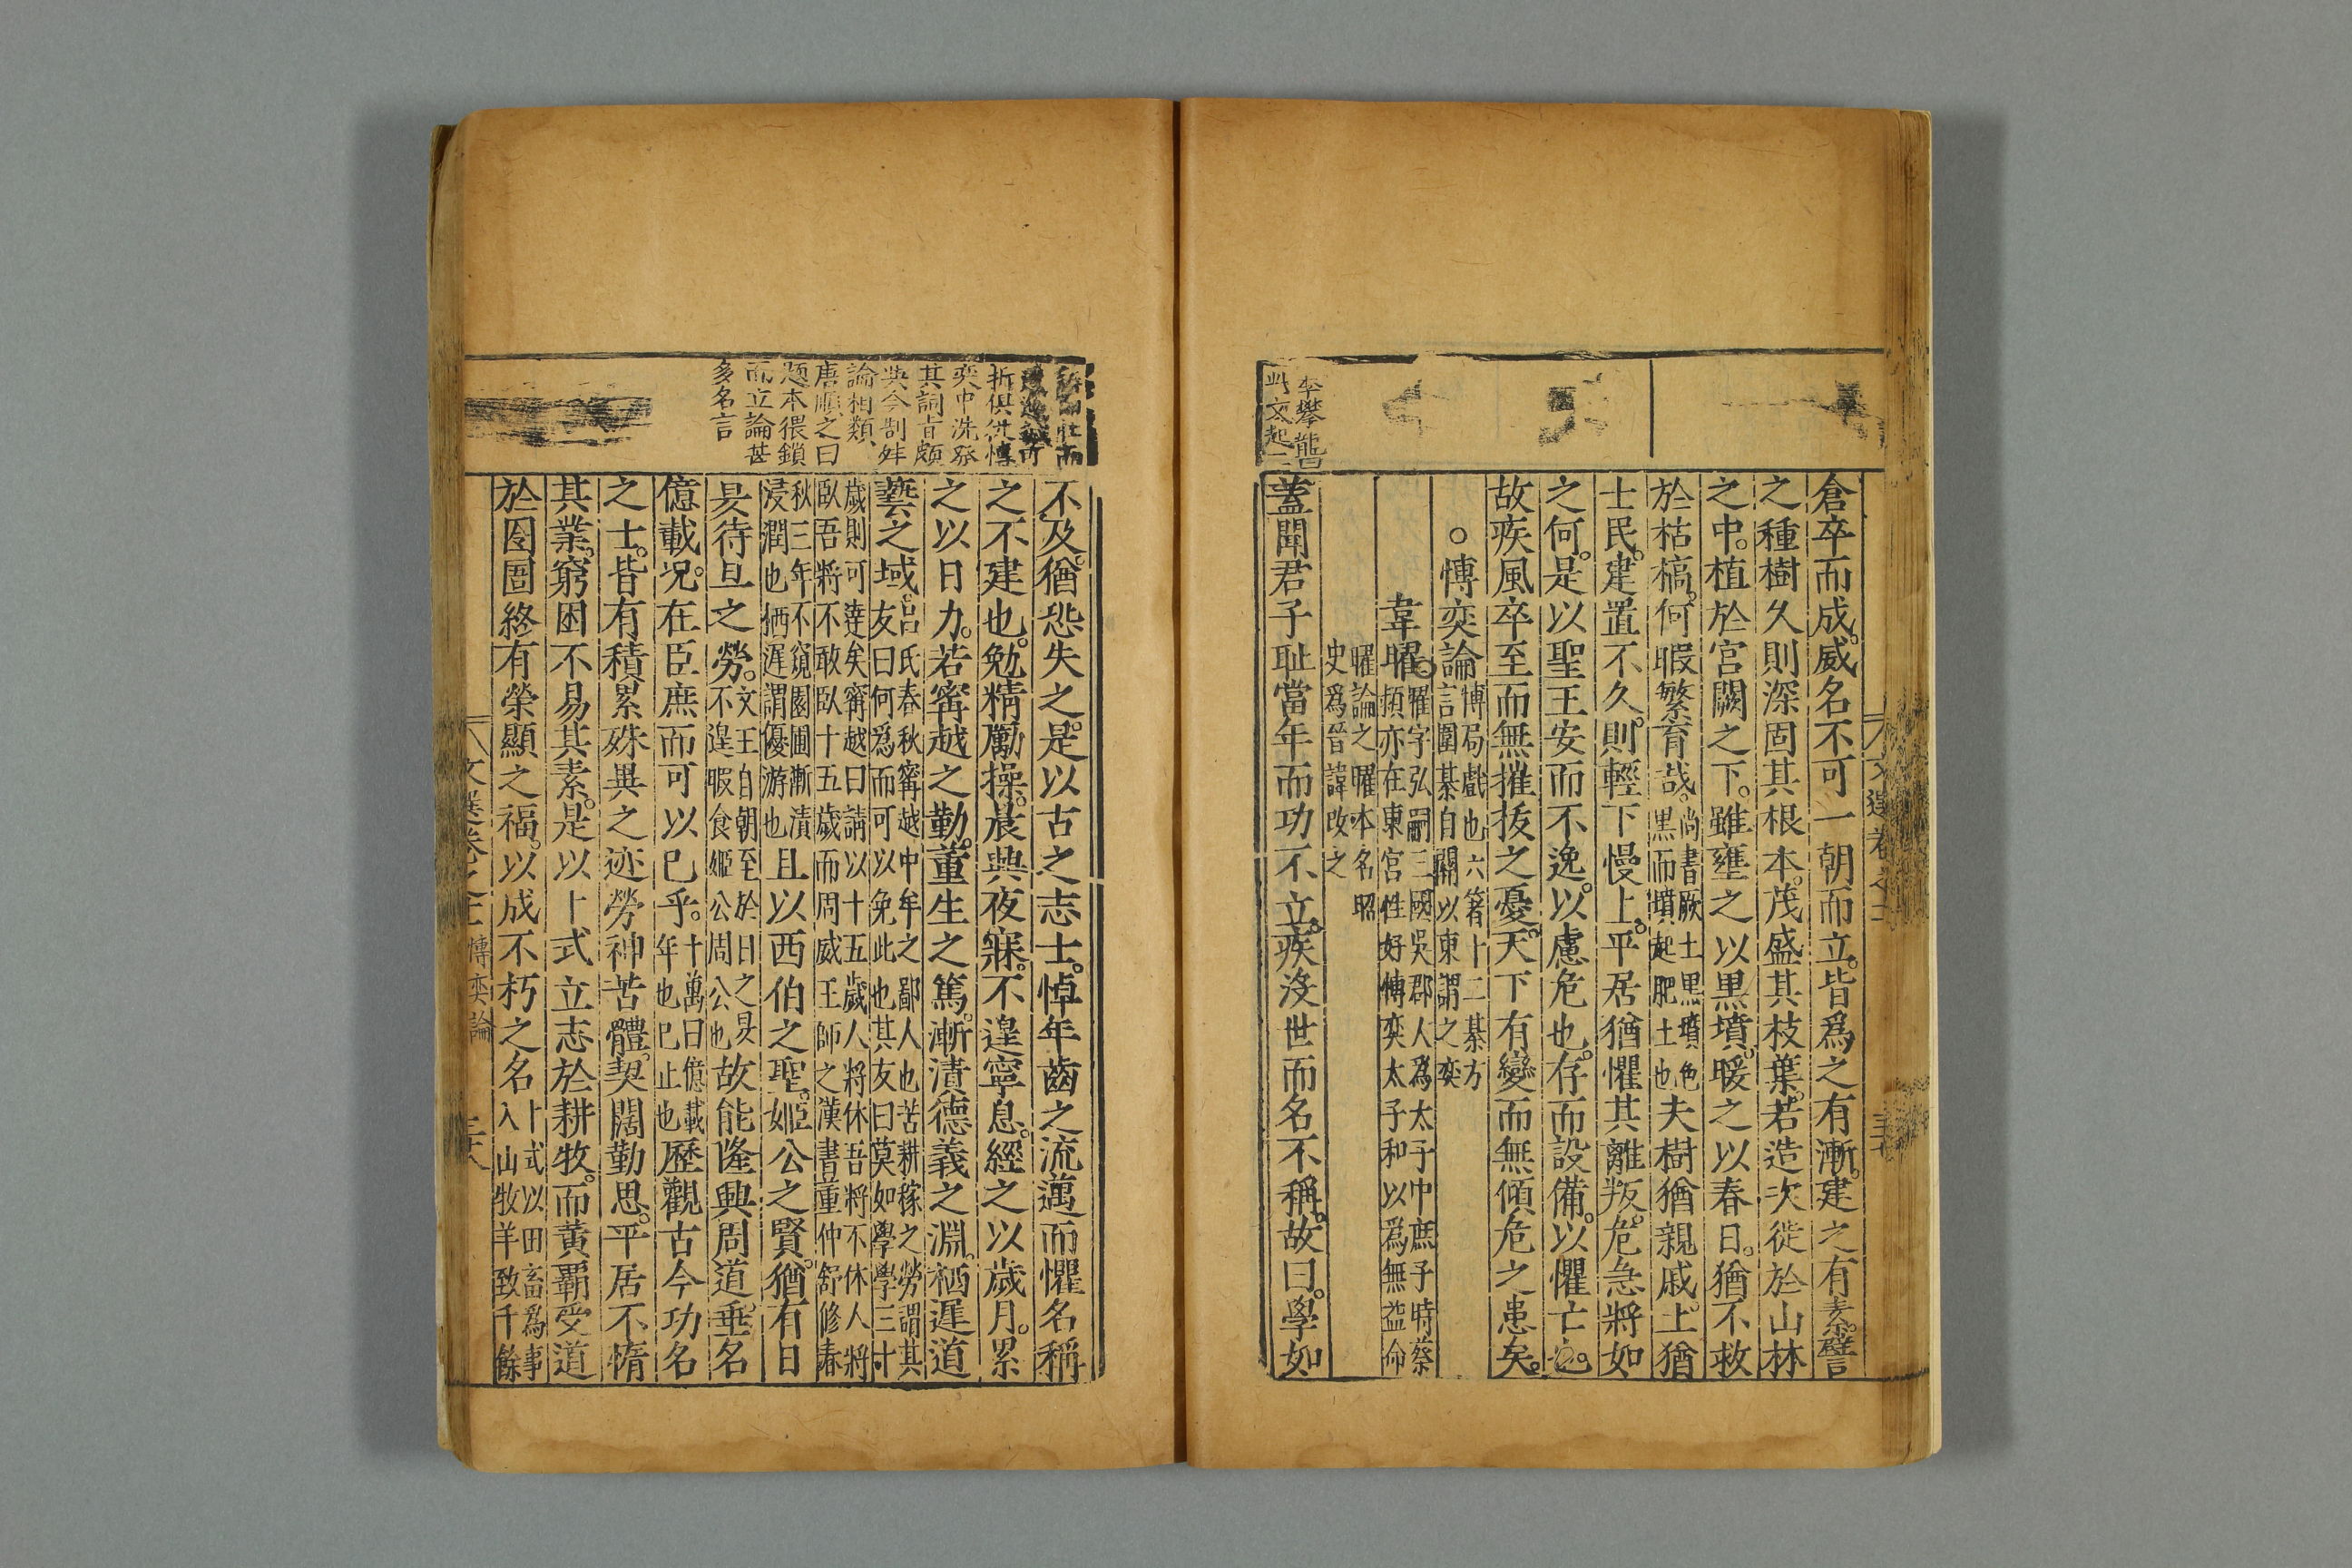 倉卒而成。威名不可一朝而立。皆爲之有漸。建之有素。譬
之種樹久則深固其根本。茂盛其枝葉。若造次徙於山林
之中。植於宮闕之下。雖壅之以黒墳。暖之以春日。猶不救
於枯槁。何暇繁育哉。尚書厥土黒墳色黒而墳起肥土也夫樹猶親戚。土猶
士民。建置不久。則輕下慢上。平居猶懼其離叛。危急將如
之何。是以聖王安而不逸。以慮危也。存而設備。以懼亡也。
故疾風卒至而無摧拔之憂。天下有變而無傾危之患矣。
○博奕論博局戲也六箸十二棊方言圍棊自關以東謂之奕
韋曜。曜字弘嗣三國吳郡人爲太子中庶子時蔡頴亦在東宮性好博奕太子和以爲無益命
曜論之曜本名昭史爲晉諱改之
蓋聞君子耻當年而功不立。疾沒世而名不稱。故曰。學如
李攀龍曰
此文起
文選卷之
不及。猶恐失之。是以古之志士。悼年齒之流邁而懼名稱
之不建也。勉精厲操。晨興夜寐。不遑寧息。經之以歲月。累
之以日力。若甯越之勤。董生之篤。漸漬德義之淵。栖遲道
藝之域。呂氏春秋甯越中牟之鄙人也苦耕稼之勞謂其友曰何爲而可以免此也其友曰莫如學學三十
歲則可達矣甯越曰請以十五歲人將休吾將不休人將臥吾將不敢臥十五歲而周威王師之漢書董仲舒修春
秋三年不窺園圃漸漬浸潤也栖遲謂優游也且以西伯之聖。姬公之賢。猶有日
昃待旦之勞。文王自朝至於日之昃不遑暇食姬公周公也故能隆興周道。垂名
億載。况在臣庶而可以已乎。十萬曰億載年也已止也歷觀古今功名
之士。皆有積累殊異之迹勞神苦體。契闊勤思。平居不惰
其業。窮困不易其素。是以卜式立志於耕牧。而黃霸受道
於囹圄終有榮顯之福。以成不朽之名卜式以田畜爲事入山牧羊致千餘
折俱從博
奕中洗發
其詞旨頗
與今制舉
論相類
唐順之曰
題本猥鎖
而立論甚
多名言
文選卷之 博奕論